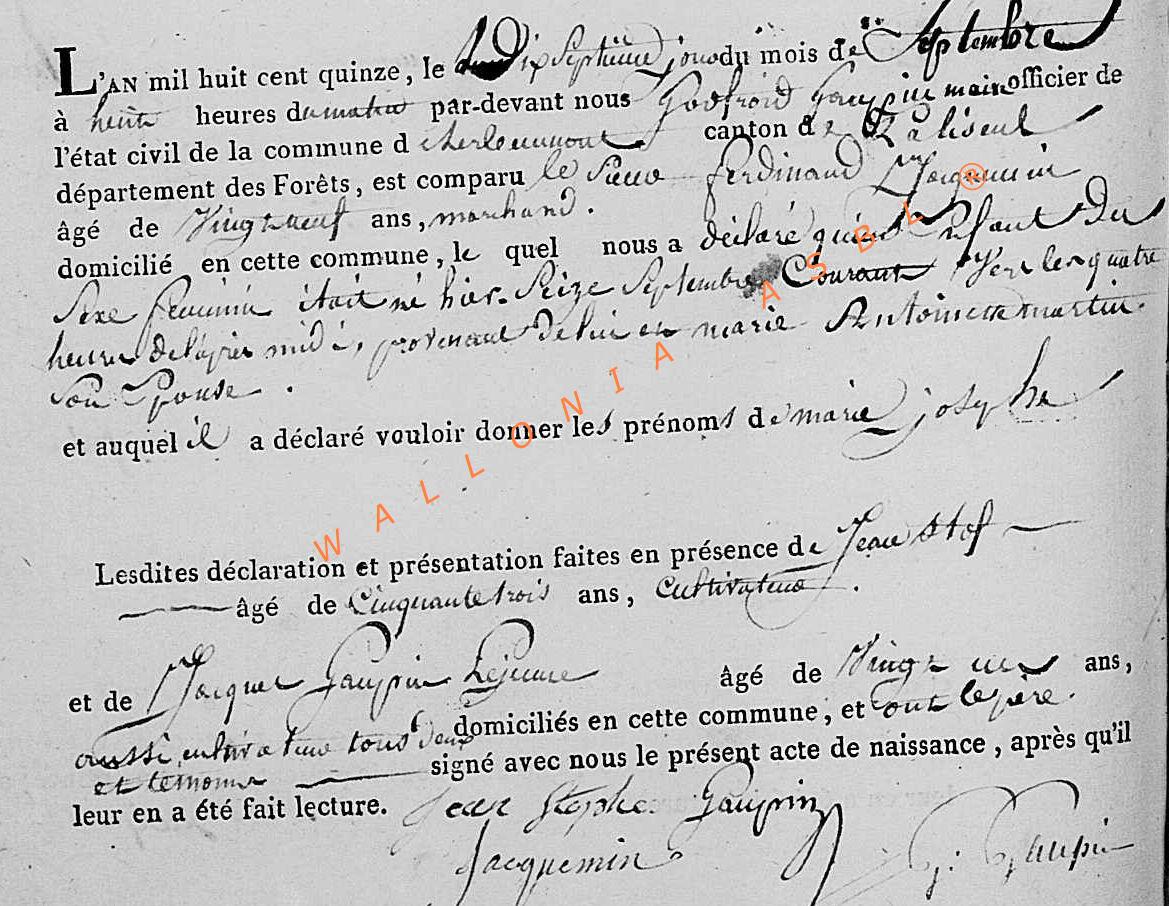 L'AN mil huit cent quinze, le Dix Septième jour du mois de Septembre
à heures du matin par-devant nous Godfroid Gaupin maire officier de
l'état civil de la commune d cherlemmont canton de Paliseul
département des Forêts, est comparu le Sieur Ferdinand Jacquemin
âgé de Vingt neuf ans, marchand.
domicilié en cette commune, le quel nous a déclaré qu'un Enfant Du
Sexe feminin était né hier Seize Septembre Courant Vers les quatre
heures del'après midi, provenant De lui et marie Antoinette martin
Son Epouse.
et auquel il a déclaré vouloir donner les prénoms de marie josephe
Lesdites déclaration et présentation faites en présence de Jean Stof
âgé de Cinquante trois ans, Cultivateur.
et de Jacques Gaupin Lejeune âgé de Vingt ans,
aussi cultivateur tous deux domiciliés en cette commune, et ont le père
et temoins signé avec nous le présent acte de naissance, après qu'il
leur en a été fait lecture. Gaupin
Jacquemin G. Gaupin
WALLONIA ASBL ®